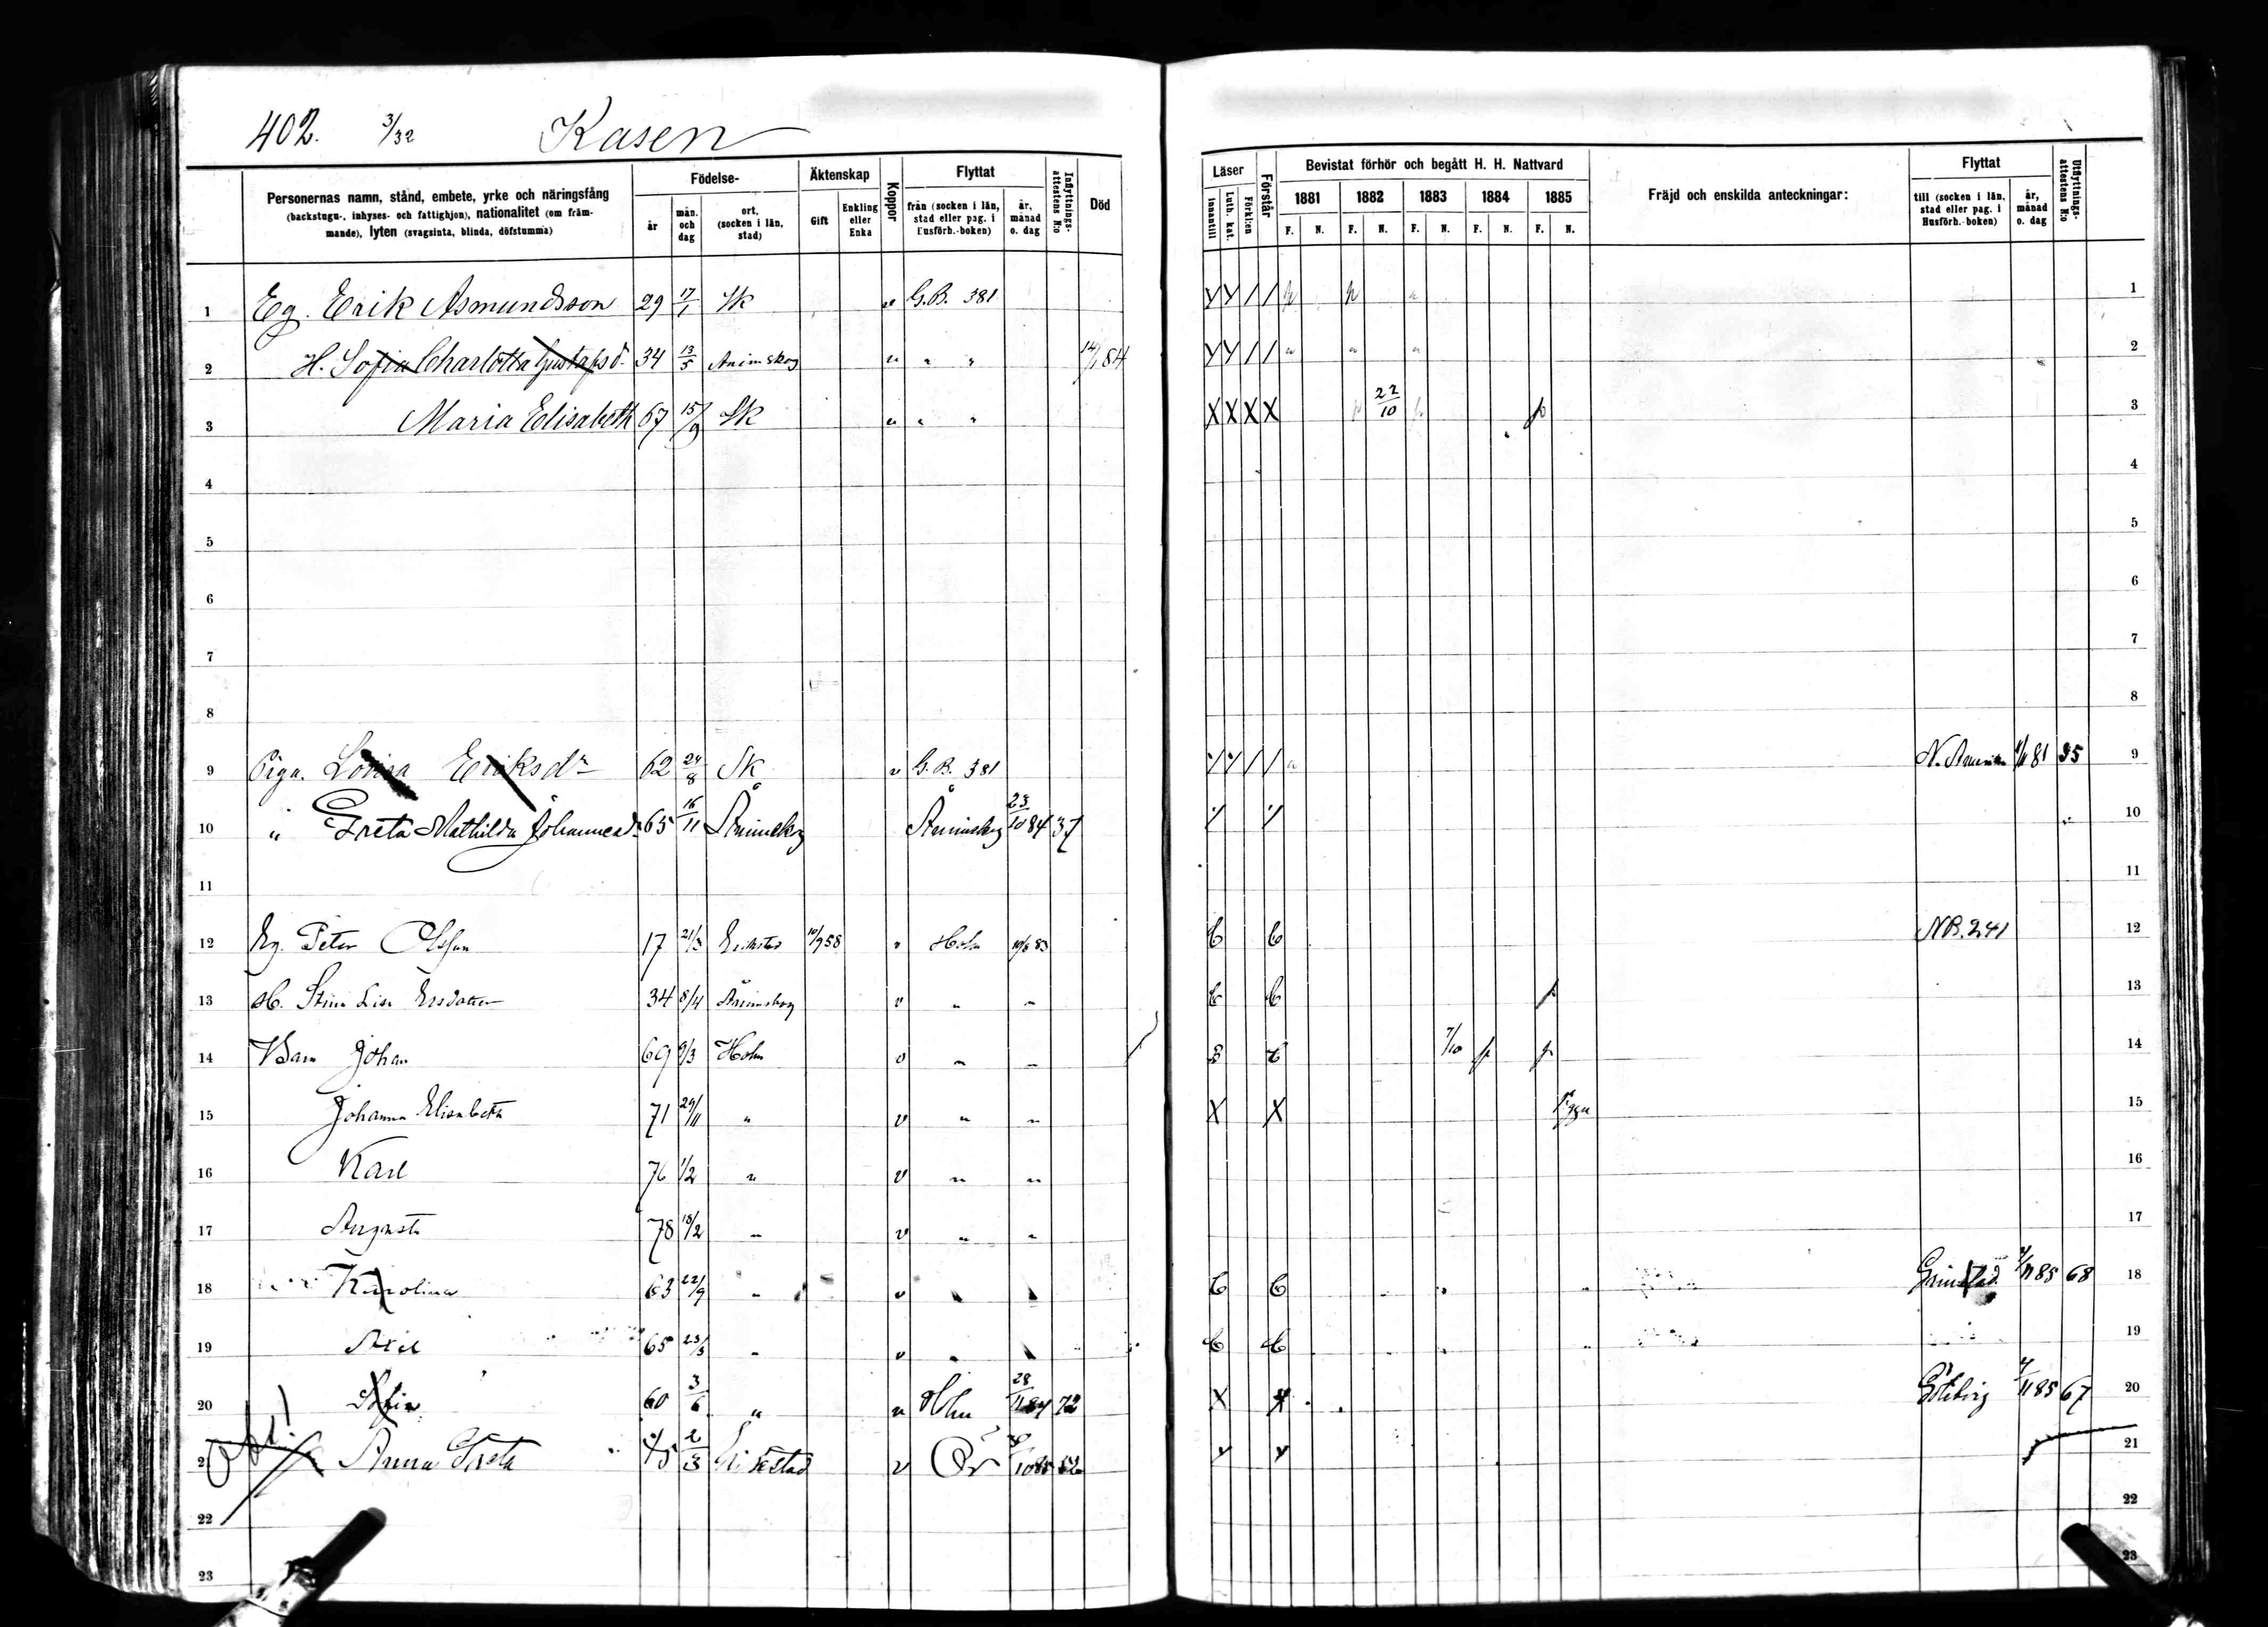 402. 3/32 Kasen
Personernas namn, stånd, embete, yrke och näringsfång
(backstugu-, inhyses- och fattighjon), nationalitet (om främ-
mande), lyten (svagsinta, blinda, döfstumma)
Födelse-
år
mån. och dag
ort, (socken i län, stad)
Äktenskap
Gift
Enkling eller Enka
Koppor
Flyttat
från (socken i län, stad eller pag. i Husförh.-boken)
år, månad o. dag
Inflyttnings-attestens N:o
Död
Läser
Innantill
Luth. kat.
Förkl:en
Förstår
Bevistat förhör och begått H. H. Nattvard
1881 1882 1883 1884 1885
F. N. F. N. F. N. F. N. F. N.
Fräjd och enskilda anteckningar:
Flyttat
till (socken i län, stad eller pag. i Husförh.-boken)
år, månad o. dag
Utflyttnings-attestens N:o
1 Eg. Erik Asmundsson 29 17/1 Sk G.B. 381 1
2 H. Sofia Charlotta Gustafsd. 34 13/5 Ånimskog " " 14/1 84 2
3 Maria Elisabeth 67 15/9 Sk " " X X X X 22/10 3
4 4
5 5
6 6
7 7
8 8
9 Piga. Lovisa Eriksdr 62 24/8 Sk G.B. 381 N. Amerika 81 95 9
10 " Greta Mathilda Johannesd. 65 16/11 Ånimskog Ånimskog 23/10 84 37 10
11 11
12 Eg. Peter Olsson 17 21/3 Erikstad 58 Holm 83 NB. 241 12
13 H. Stina Lisa Ersdotter 34 8/4 Ånimskog v " " 13
14 Barn Johan 69 9/3 Holm v " " 7/10 14
15 Johanna Elisabeth 71 29/11 " v " " X X 15
16 Karl 76 1/2 " v " " 16
17 Augusta 78 18/2 " v " " 17
18 Karolina 63 22/9 " v " " Grinstad 85 68 18
19 Axel 65 23/3 " v " " 19
20 Sofia 60 3/6 " Holm 28/11 84 72 X X Göteborg 85 67 20
21 Anna Greta 45 2/3 Erikstad v Ör 10 85 52 21
22 22
23 23